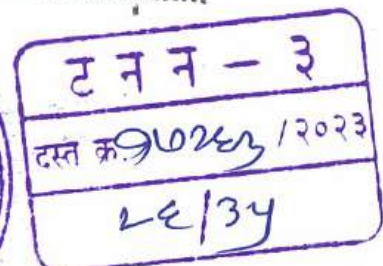 ट न न - ३
दस्त क्र. १७२६३ / २०२३
२६ / ३५